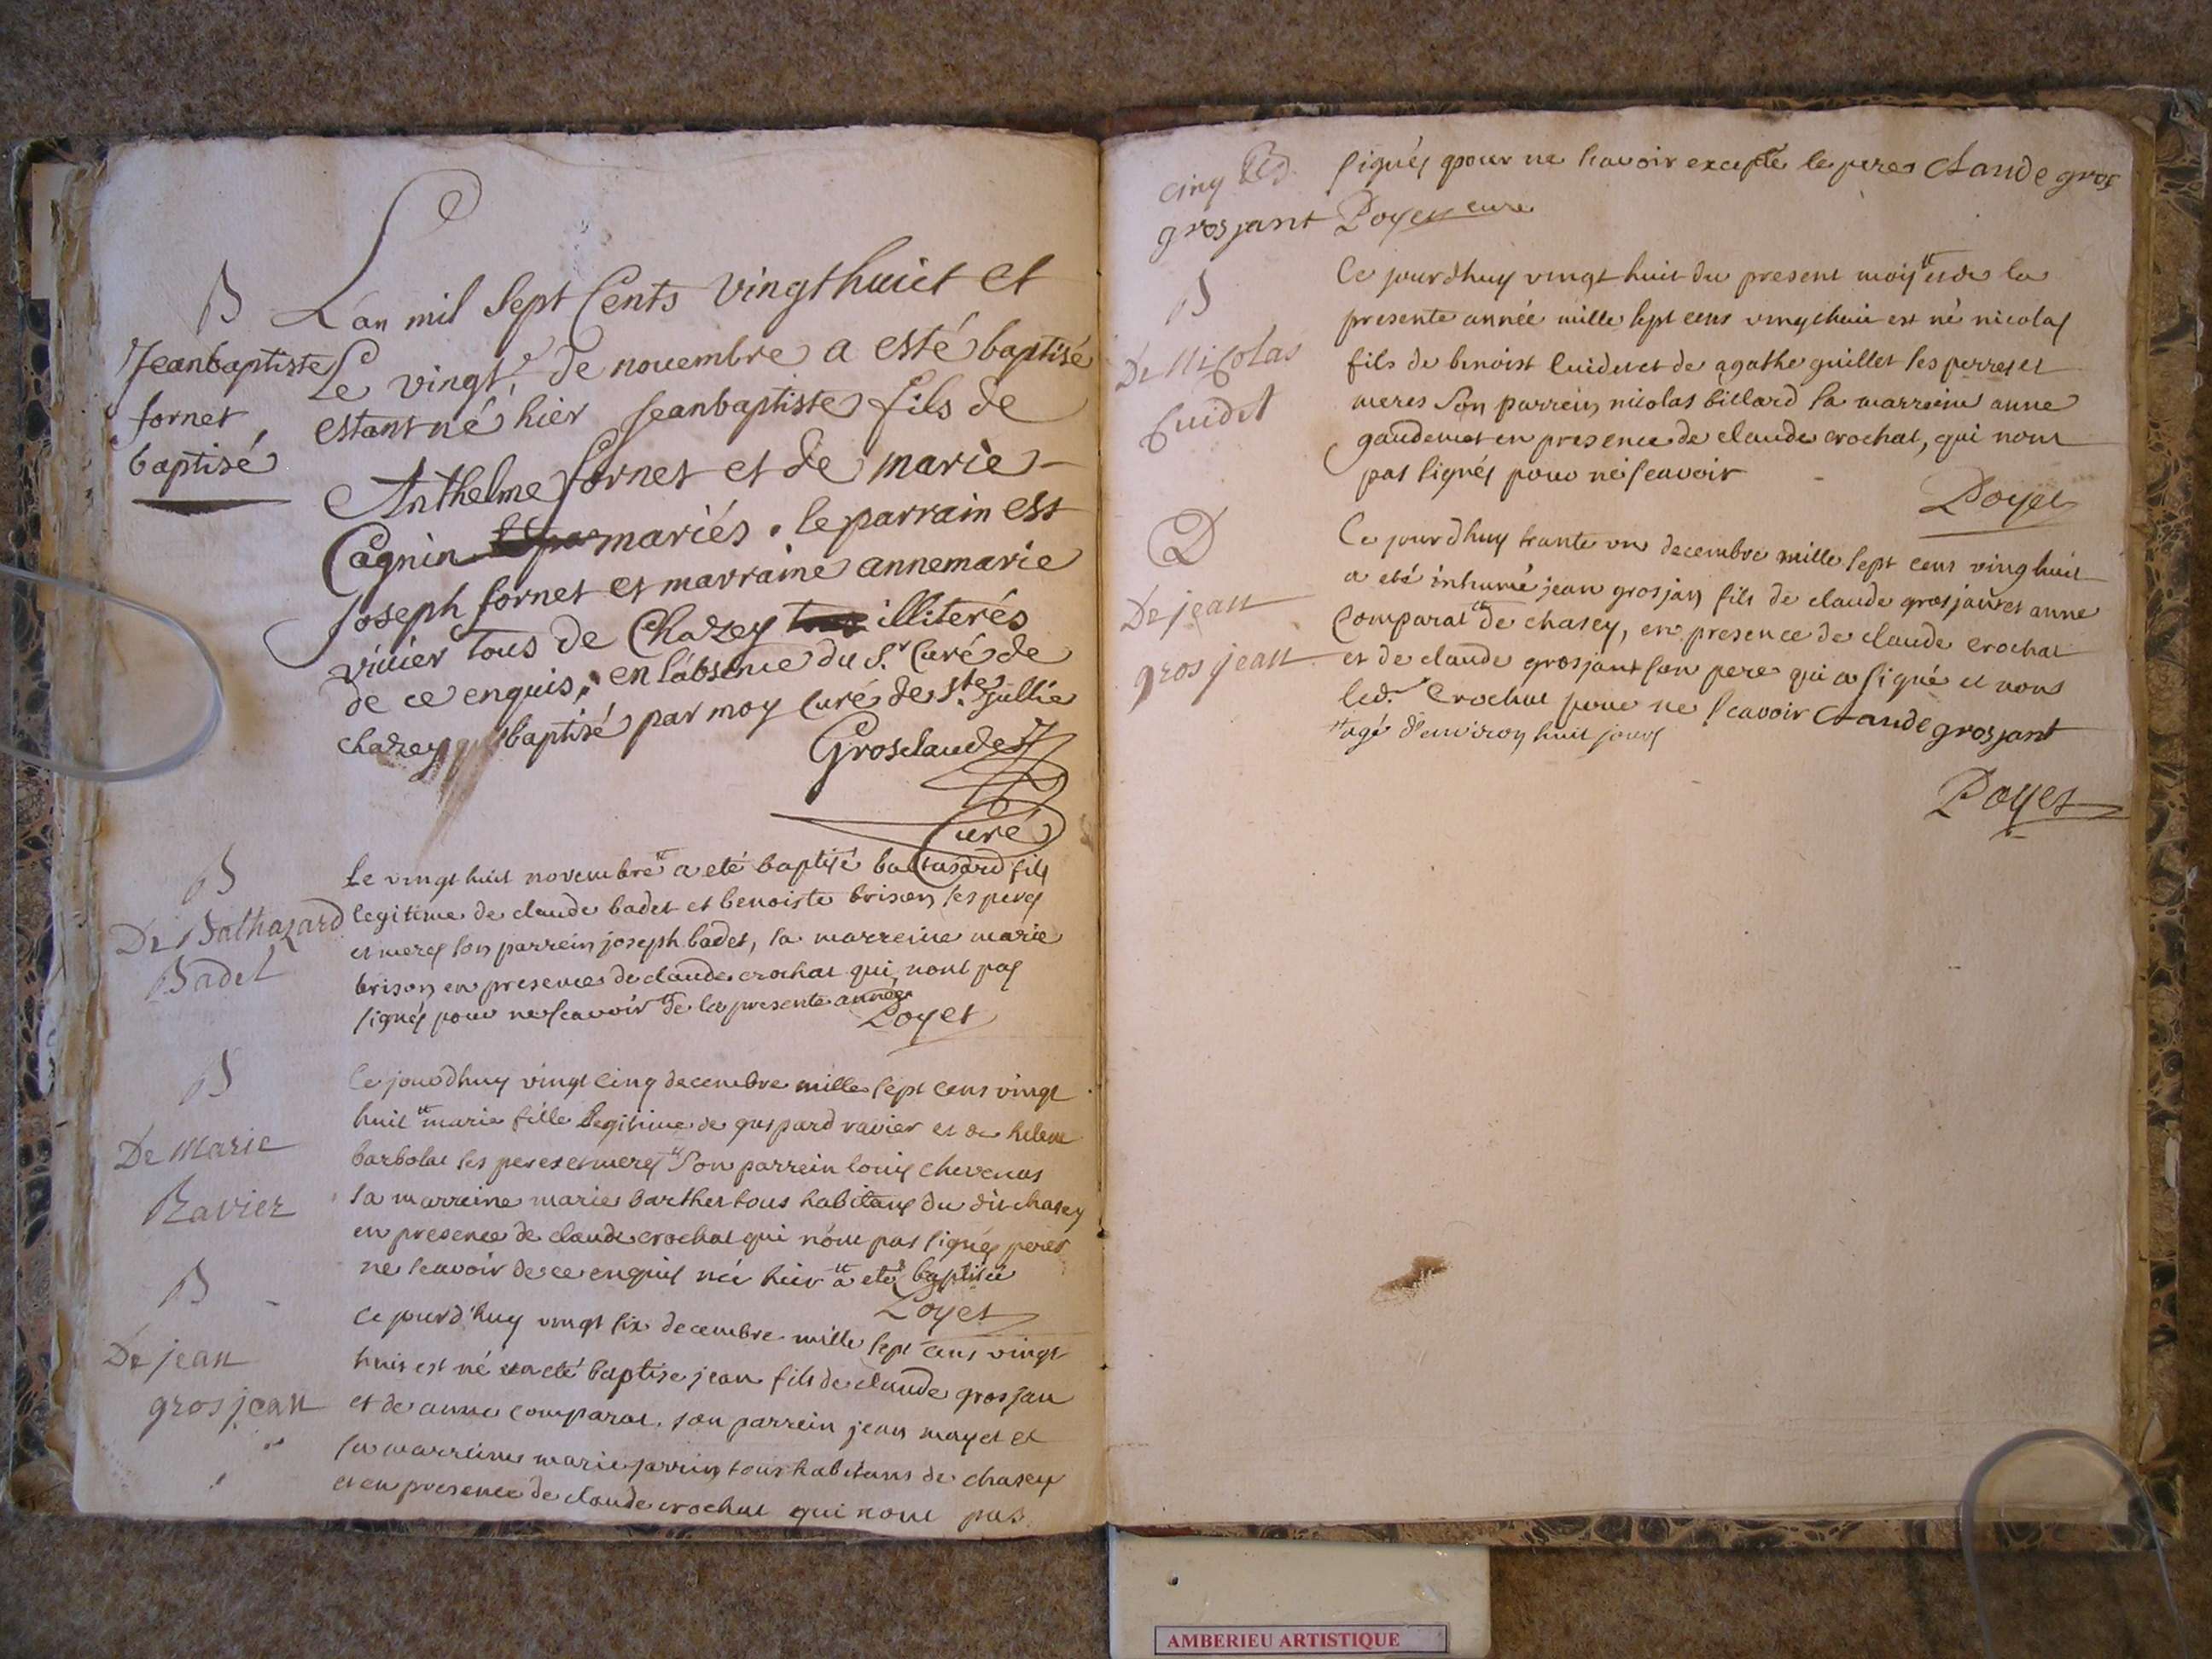 B
Jeanbaptiste
fornet
baptisé
L'an mil Sept Cents vingthuict et
Le vingt.e de nouembre a esté baptisé
estant né hier Jeanbaptiste fils de
Anthelme fornet et de marie
Cagnin mariés. le parrain est
Joseph fornet et marraine annemarie
viuier tous de Chazey illiterés
de ce enquis; en l'absence du S.r Curé de
chazey baptisé par moy Curé de S.te Jullie
Grosclaude
Curé
B
De Balthazard
Badet
Le vingt huit novembre tt a eté baptisé baltasard fils
legitime de claude badet et benoiste brison ses peres
et meres son parrein joseph badet, sa marreine marie
brison en presence de claude crochat qui nont pas
signés pour ne scavoir tt de la presente année
Poyet
B
De Marie
Ravier
Ce jourdhuy vingt cinq decembre mille sept cens vingt
huit tt marie fille legitime de gaspard ravier et de helene
barbolat ses peres et meres tt Son parrein louis chevenas
sa marreine marie barthet tous habitans du dit chasey
en presence de claude crochat qui n'ont pas signés pour
ne scavoir de ce enquis née hier tt a eté baptisée
Poyet
B
De jean
grosjean
Ce jourd'huy vingt six decembre mille sept cens vingt
huit est né et a eté baptise jean fils de claude grosjan
et de anne comparat. son parrein jean mayet et
sa marreine marie jarrin tous habitans de chasey
et en presence de claude crochat qui nont pas
signés pour ne scavoir excepté le peres Claude gros
grosjant Poyet cure
B
De Nicolas
Cuidet
Ce jourdhuy vingt huit du present mois tt et de la
presente année mille sept cens vingthuit est né nicolas
fils de benoist Cuidet et de agathe guillet ses perres et
meres Son parrein nicolas billard sa marreine anne
gaudemet en presence de claude crochat, qui nont
pas signés pour ne scavoir
Poyet
D
De jean
grosjean
Ce jourdhuy trante un decembre mille sept cens ving huit
a eté inhumé jean grosjan fils de claude grosjant et anne
Comparat tt de chasey, en presence de claude crochat
et de claude grosjant son pere qui a signé et nons
led. Crochat pour ne scavoir Claude grosjant
tt agé d'environ huit jours
Poyet
AMBERIEU ARTISTIQUE